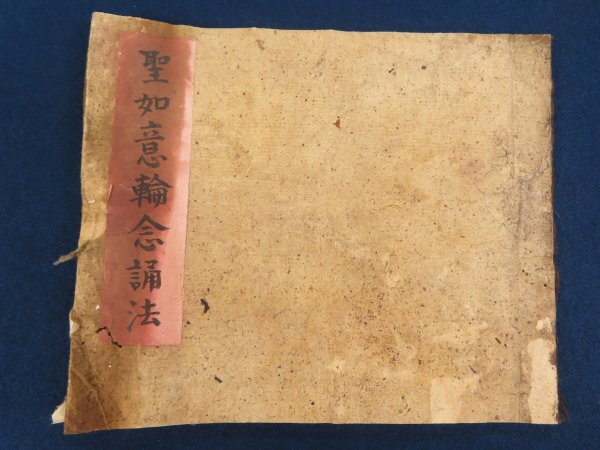 聖如意輪念誦法